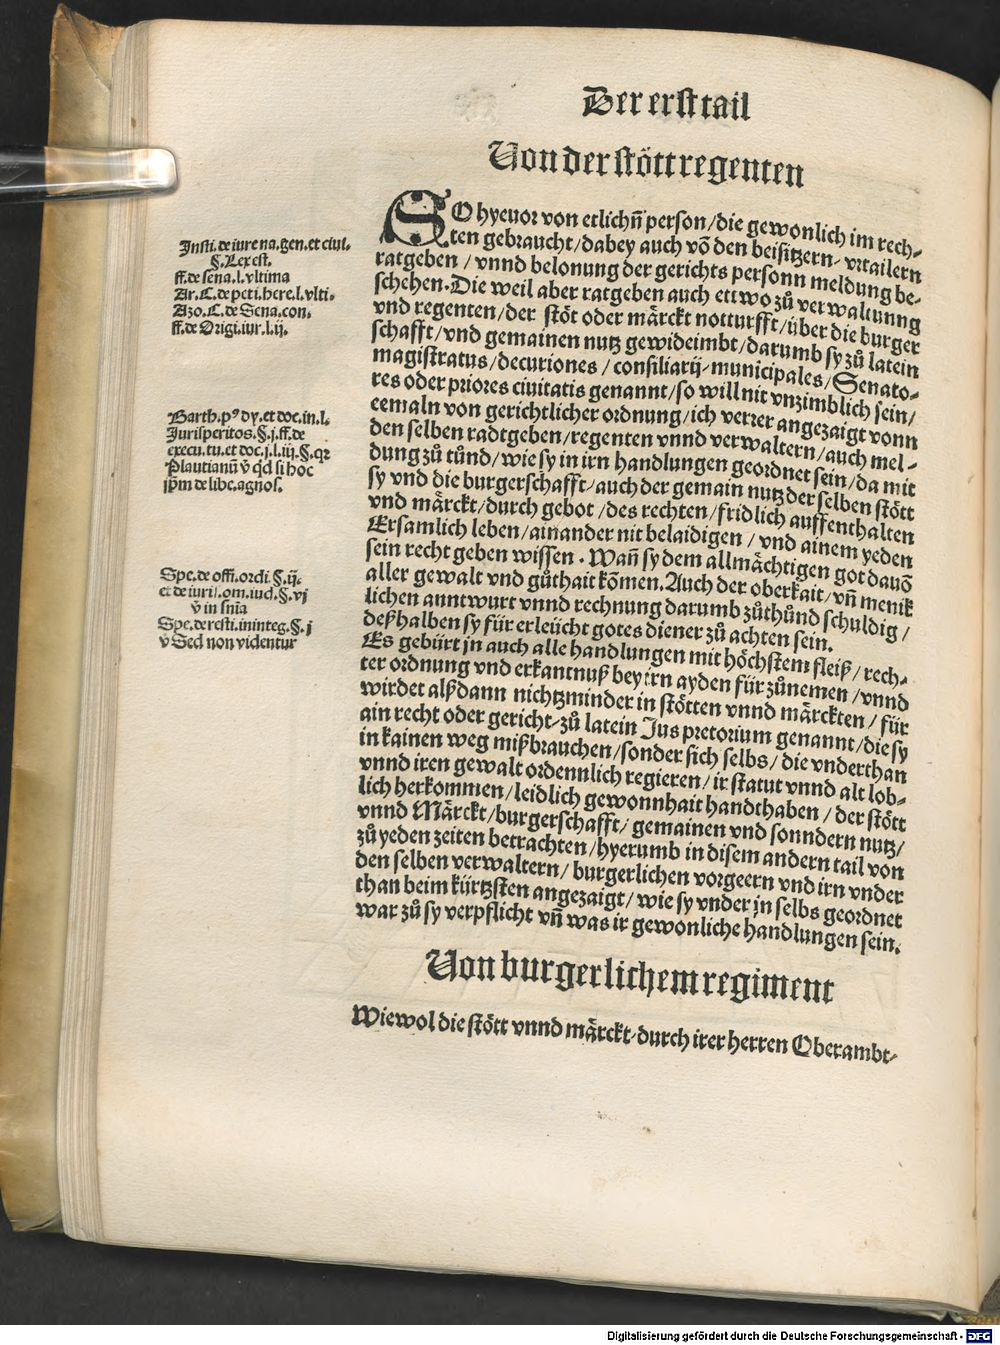 Der erst tail
Von der stött regenten
SO hyeuor von etlichñ person/die gewonlich im rech-
ten gebraucht/dabey auch võ den beisitzern/ vrtailern
ratgeben / vnnd belonung der gerichts personn meldung be-
schehen. Die weil aber ratgeben auch ettwo zů verwaltunng
vnd regenten/der stöt oder märckt notturfft/über die burger
schafft/vnd gemainen nutz gewideimbt/darumb sy zů latein
magistratus/decuriones / consiliarij/municipales/Senato-
res oder priores ciuitatis genannt/so will nit vnzimblich sein/
eemaln von gerichtlicher ordnung/ich verrer angezaigt vonn
den selben radtgeben/regenten vnnd verwaltern/auch mel-
dung zů tůnd/wie sy in irn handlungen geordnet sein/da mit
sy vnd die burgerschafft/auch der gemain nutz der selben stött
vnd märckt/durch gebot /des rechten/fridlich auffenthalten
Ersamlich leben/ainander nit belaidigen / vnd ainem yeden
sein recht geben wissen. Wañ sy dem allmächtigen got dauõ
aller gewalt vnd gůthait kõmen. Auch der oberkait/vñ menik
lichen anntwurt vnnd rechnung darumb zůthůnd schuldig /
deßhalben sy für erleücht gotes diener zů achten sein.
Es gebürt jn auch alle handlungen mit höchstem fleiß/rech-
ter ordnung vnd erkantnuß bey irn ayden für zůnemen /vnnd
wirdet alßdann nichtzminder in stötten vnnd märckten / für
ain recht oder gericht/zů latein Jus pretorium genannt/die sy
in kainen weg mißbrauchen/sonder sich selbs/die vnderthan
vnnd iren gewalt ordennlich regieren/ir statut vnnd alt lob-
lich herkommen/leidlich gewonnhait handthaben / der stött
vnnd Märckt/burgerschafft/gemainen vnd sonndern nutz/
zů yeden zeiten betrachten/hyerumb in disem andern tail von
den selben verwaltern/burgerlichen vorgeern vnd irn vnder
than beim kürtzsten angezaigt/wie sy vnder jn selbs geordnet
war zů sy verpflicht vñ was ir gewonliche handlungen sein.
Von burgerlichem regiment
Wiewol die stött vnnd märckt/durch irer herren Oberambt-
Insti. de iure na. gen. et ciuil.
§. Lex est.
ff. de sena. l. vltima
Ar. C. de peti. here. l. vlti.
Azo. C. de Sena. con.
ff. de Origi. iur. l. ij.
Barth. pꝰ dy. et doc. in. l.
Jurisperitos. §. j. ff. de
execu. tu. et doc. j. l. iij. §. qz
Plautianũ v̇ qđ si hoc
ip̃m de libe. agnos.
Spe. de offi. ordi. §. ij.
et de iuril. om. iud. §. vj
v̇ in snia
Spe. de resti. in integ. §. j
v Sed non videntur
Digitalisierung gefördert durch die Deutsche Forschungsgemeinschaft - DFG